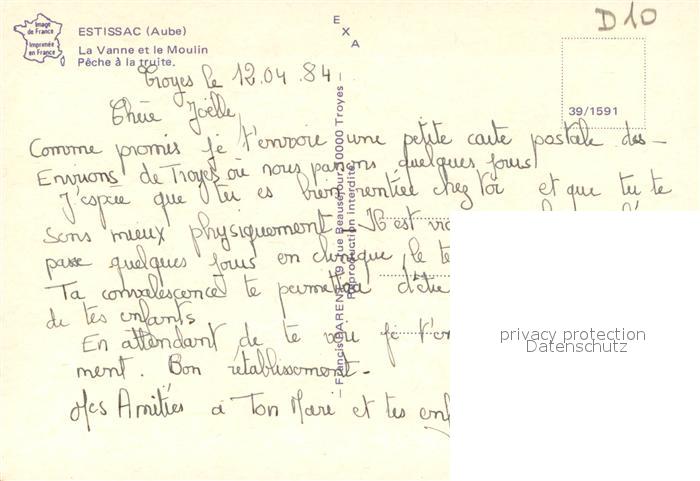 Image
de France
Imprimée
en France
ESTISSAC (Aube)
La Vanne et le Moulin
Pêche à la truite.
E
X
A
D10
39/1591
Troyes le 12.04.84
Chère Joëlle,
Comme promis je t'envoie une petite carte postale des
Environs de Troyes où nous passons quelques jours
J'espère que tu es bien rentrée chez toi et que tu te
sens mieux physiquement. Il est
passé quelques jours en clinique, le
Ta convalescence te permettra
de tes enfants
En attendant de te voir je
ment. Bon rétablissement.
Mes Amitiés à Ton Mari et tes
Francis PARENT 19, rue Beauséjour, 10000 Troyes
Reproduction interdite
privacy protection
Datenschutz